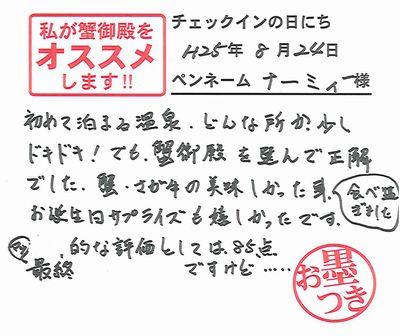 私が蟹御殿を
オススメ
します!!
チェックインの日にち
H25年 8月24日
ペンネーム ナーミィー様
初めて泊まる温泉、どんな所か少し
ドキドキ!でも、蟹御殿を選んで正解
でした。蟹・さが牛の美味しかった事、
食べ過
ぎました
お誕生日サプライズも嬉しかったです。
最終的な評価としては85点
ですけど……
お墨つき